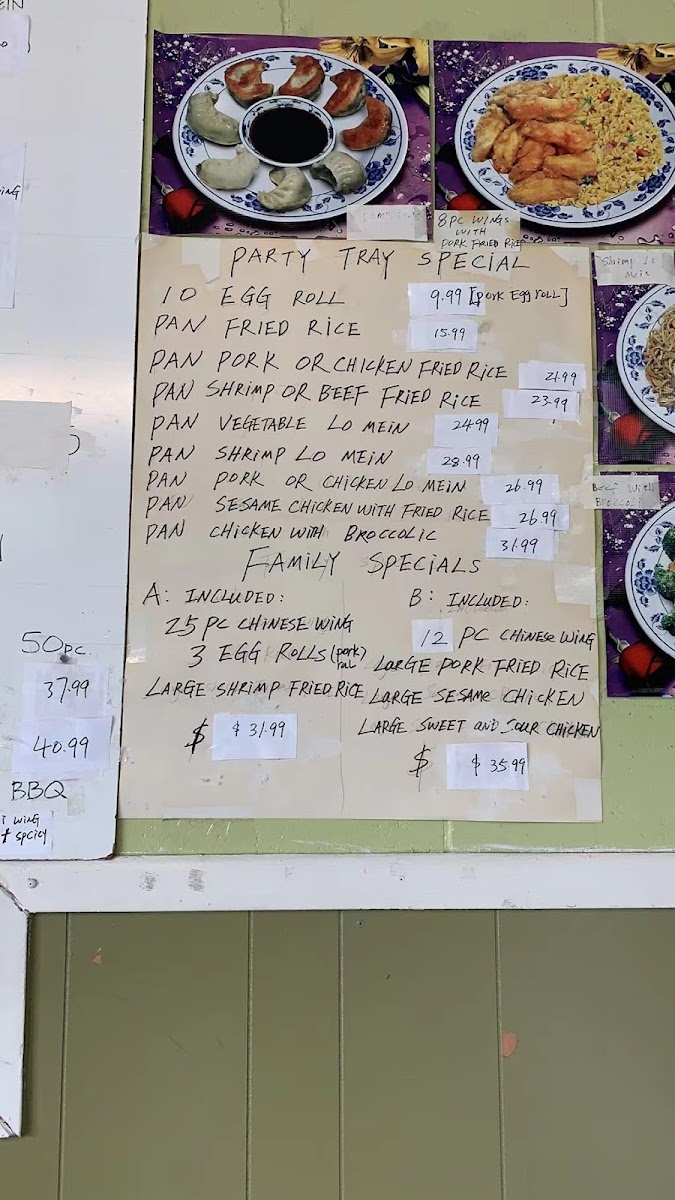 8PC WINGS
WITH
PORK FRIED RICE
PARTY TRAY SPECIAL
10 EGG ROLL 9.99 [pork Egg roll]
PAN FRIED RICE 15.99
PAN PORK OR CHICKEN FRIED RICE 21.99
PAN SHRIMP OR BEEF FRIED RICE 23.99
PAN VEGETABLE LO MEIN 24.99
PAN SHRIMP LO MEIN 28.99
PAN PORK OR CHICKEN LO MEIN 26.99
PAN SESAME CHICKEN WITH FRIED RICE 26.99
PAN CHICKEN WITH BROCCOLIC 31.99
FAMILY SPECIALS
A: INCLUDED:
25 PC CHINESE WING
3 EGG ROLLS (pork)
LARGE SHRIMP FRIED RICE
$ $31.99
B: INCLUDED:
12 PC CHINESE WING
LARGE PORK FRIED RICE
LARGE SESAME CHICKEN
LARGE SWEET AND SOUR CHICKEN
$ $35.99
Shrimp Lo
Mein
Beef With
Broccoli
50PC.
37.99
40.99
BBQ
WING
SPCIY